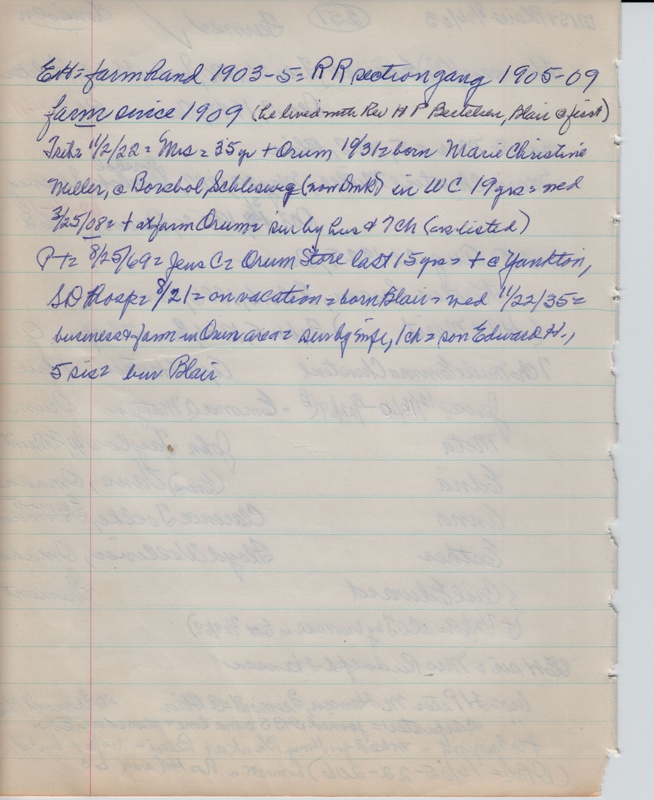 EH = farmhand 1903-5 = RR section gang 1905-09
farm since 1909 (he lived with Rev H P Bertelsen, Blair @ first)
Trib = 11/2/22 = Mrs = 35 yr + Orum 10/31 = born Marie Christine
Miller, @ Schleswig (now Dmk) in WC 19 yrs = wed
3/25/08 = + at farm Orum = sur by hus & 7 ch (as listed)
P+ = 8/25/69 = Jens C = Orum Store last 15 yrs = + @ Yankton,
SD Hosp = 8/21 = on vacation = born Blair = wed 11/22/35 =
business & farm in Orum area = sur by wife, 1 ch = son Edward H.,
5 sis = bur Blair